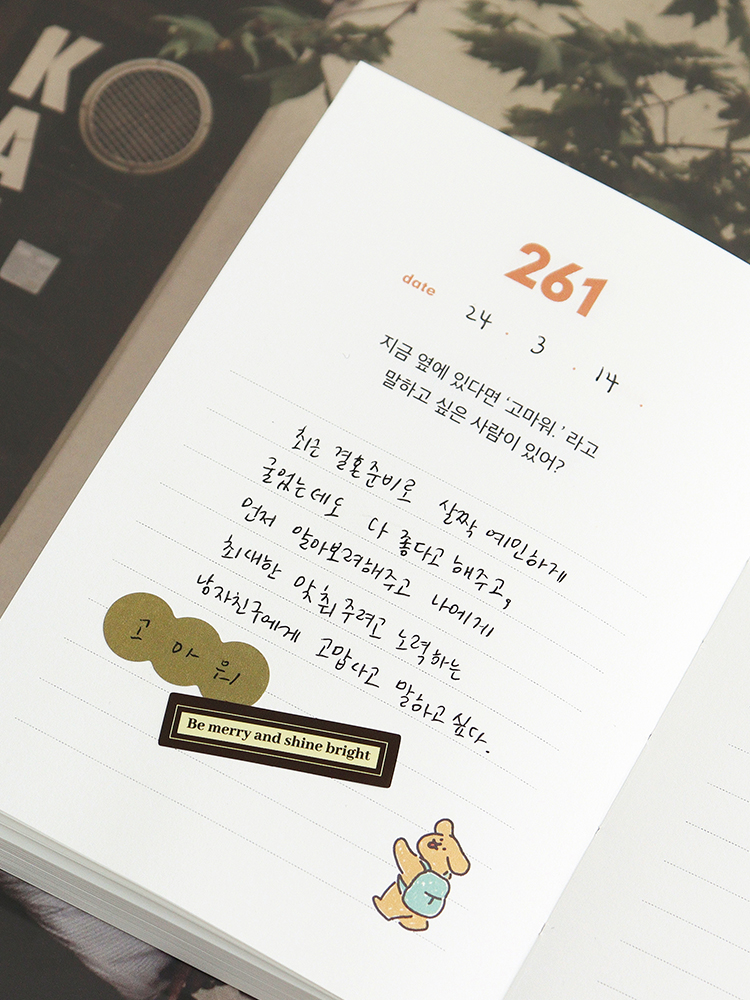 K
A
261
date 24 . 3 . 14 .
지금 옆에 있다면 '고마워.' 라고
말하고 싶은 사람이 있어?
최근 결혼준비로 살짝 예민하게
굴었는데도 다 좋다고 해주고,
먼저 알아보려해주고 나에게
최대한 맞춰주려고 노력하는
남자친구에게 고맙다고 말하고 싶다.
고 마 워
Be merry and shine bright